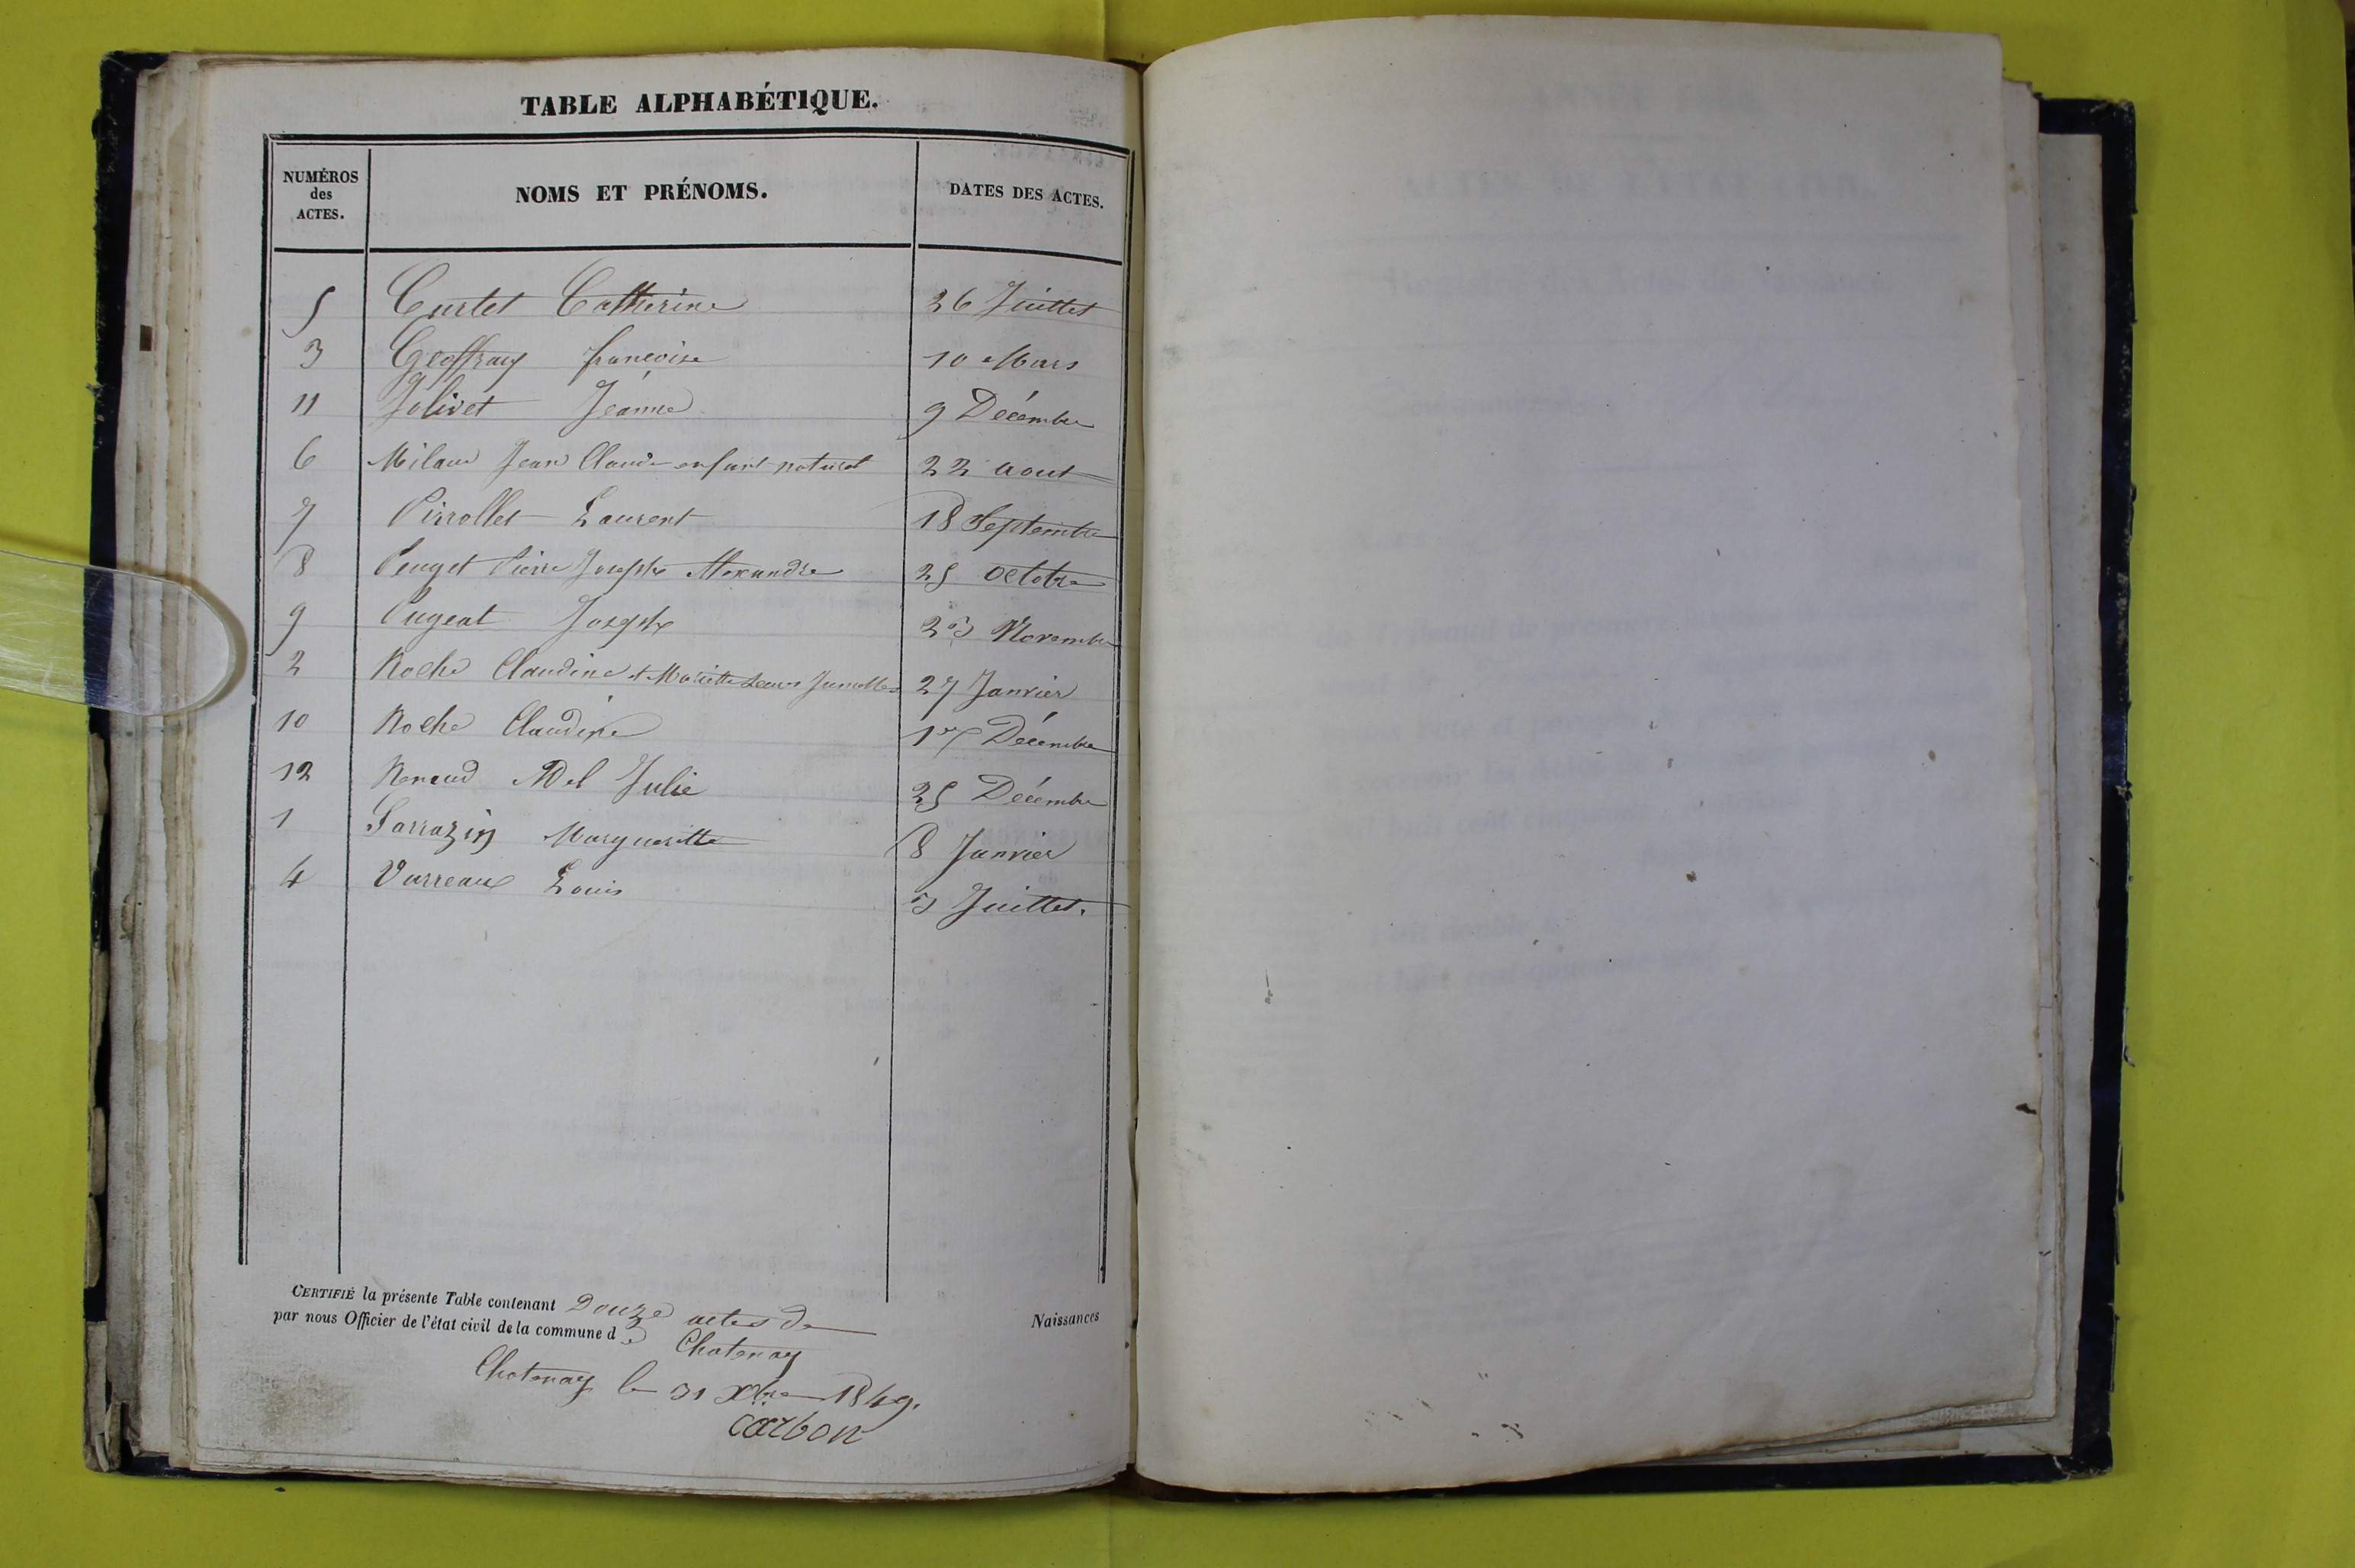 TABLE ALPHABÉTIQUE.
NUMÉROS des ACTES. NOMS ET PRÉNOMS. DATES DES ACTES.
5 Curtet Catherine 26 Juillet
3 Geoffray françoise 10 Mars
11 Jolivet Jeanne 9 Décembre
6 Milan Jean Claude enfant naturel 22 aout
7 Pirrollet Laurent 18 Septembre
8 Peuget Pierre Joseph Alexandre 25 octobre
9 Pugeat Joseph 23 Novembre
2 Roche Claudine et Mariette sœurs Jumelles 27 Janvier
10 Roche Claudine 1er Décembre
12 Renaud Adel Julie 25 Décembre
1 Sarrazin Margueritte 8 Janvier
4 Varreaux Louis 3 Juillet.
CERTIFIÉ la présente Table contenant Douze actes de Naissances
par nous Officier de l'état civil de la commune de Chatenay
Chatenay le 31 Xbre 1849.
carbon